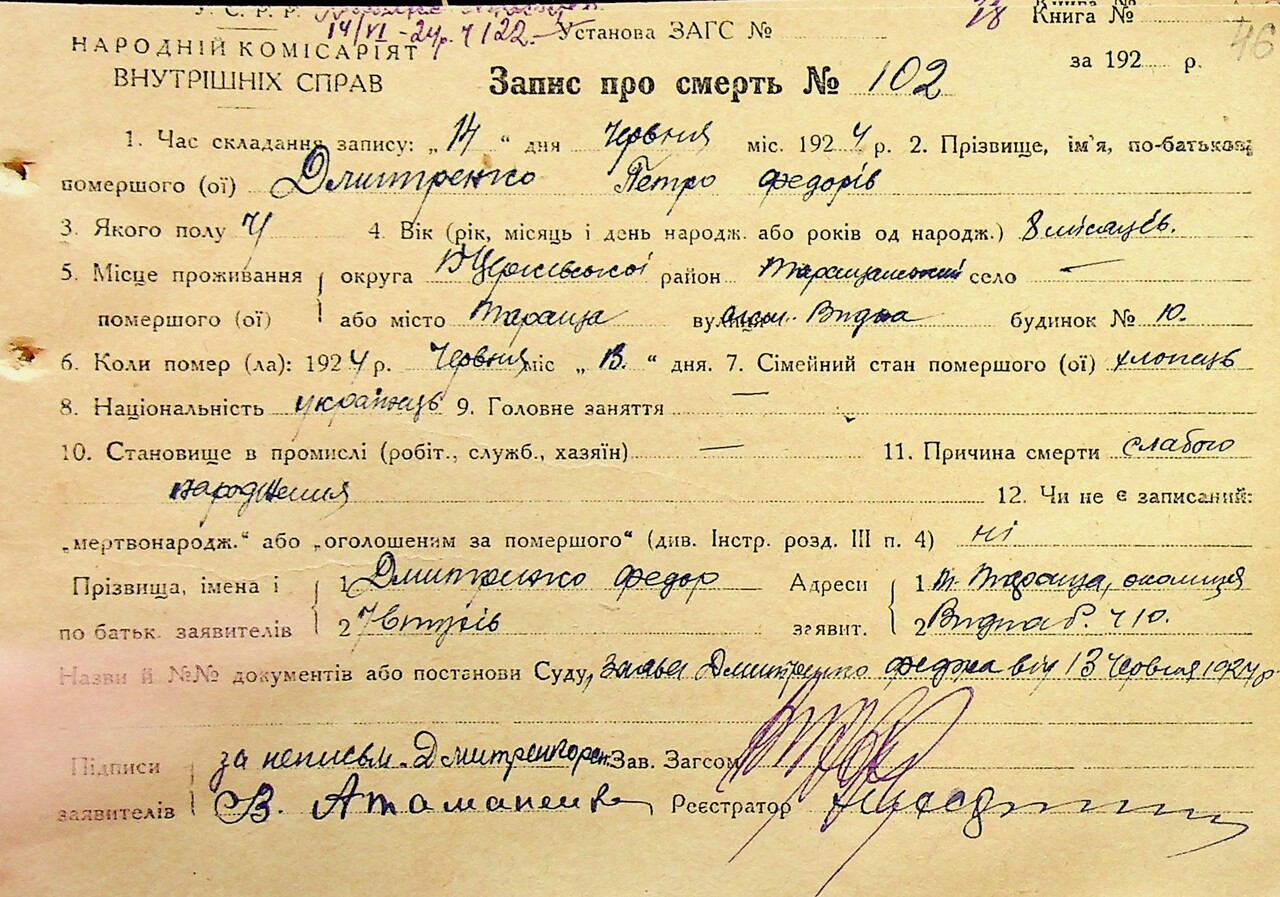 У. С. Р. Р.
14/VI - 24 р. Ч 122. Установа ЗАГС № Книга №
НАРОДНІЙ КОМІСАРІЯТ
за 192 р. 46
ВНУТРІШНІХ СПРАВ Запис про смерть № 102
1. Час складання запису: „ 14 “ дня червня міс. 1924 р. 2. Прізвище, ім'я, по-батькові
помершого (ої) Дмитренко Петро федорів
3. Якого полу Ч 4. Вік (рік, місяць і день народж. або років од народж.) 8 місяців.
5. Місце проживання округа БЦерківської район Таращанський село —
помершого (ої) або місто Тараща вулиця Видна будинок № 10.
6. Коли помер (ла): 1924 р. червня міс „ 13. “ дня. 7. Сімейний стан помершого (ої) хлопець
8. Національність українець 9. Головне заняття —
10. Становище в промислі (робіт., служб., хазяїн) — 11. Причина смерти слабого
народження 12. Чи не є записаний:
„мертвонародж.“ або „оголошеним за помершого“ (див. Інстр. розд. III п. 4) ні
Прізвища, імена і 1 Дмитренко федор Адреси 1 м. Тараща, околиця
по батьк. заявителів 2 заявит. 2 Видна б. Ч 10.
Назви й №№ документів або постанови Суду, заява Дмитренко федора від 13 червня 1924 р
Підписи за неписьм. Зав. Загсом
заявителів В. Атаманенко Реєстратор